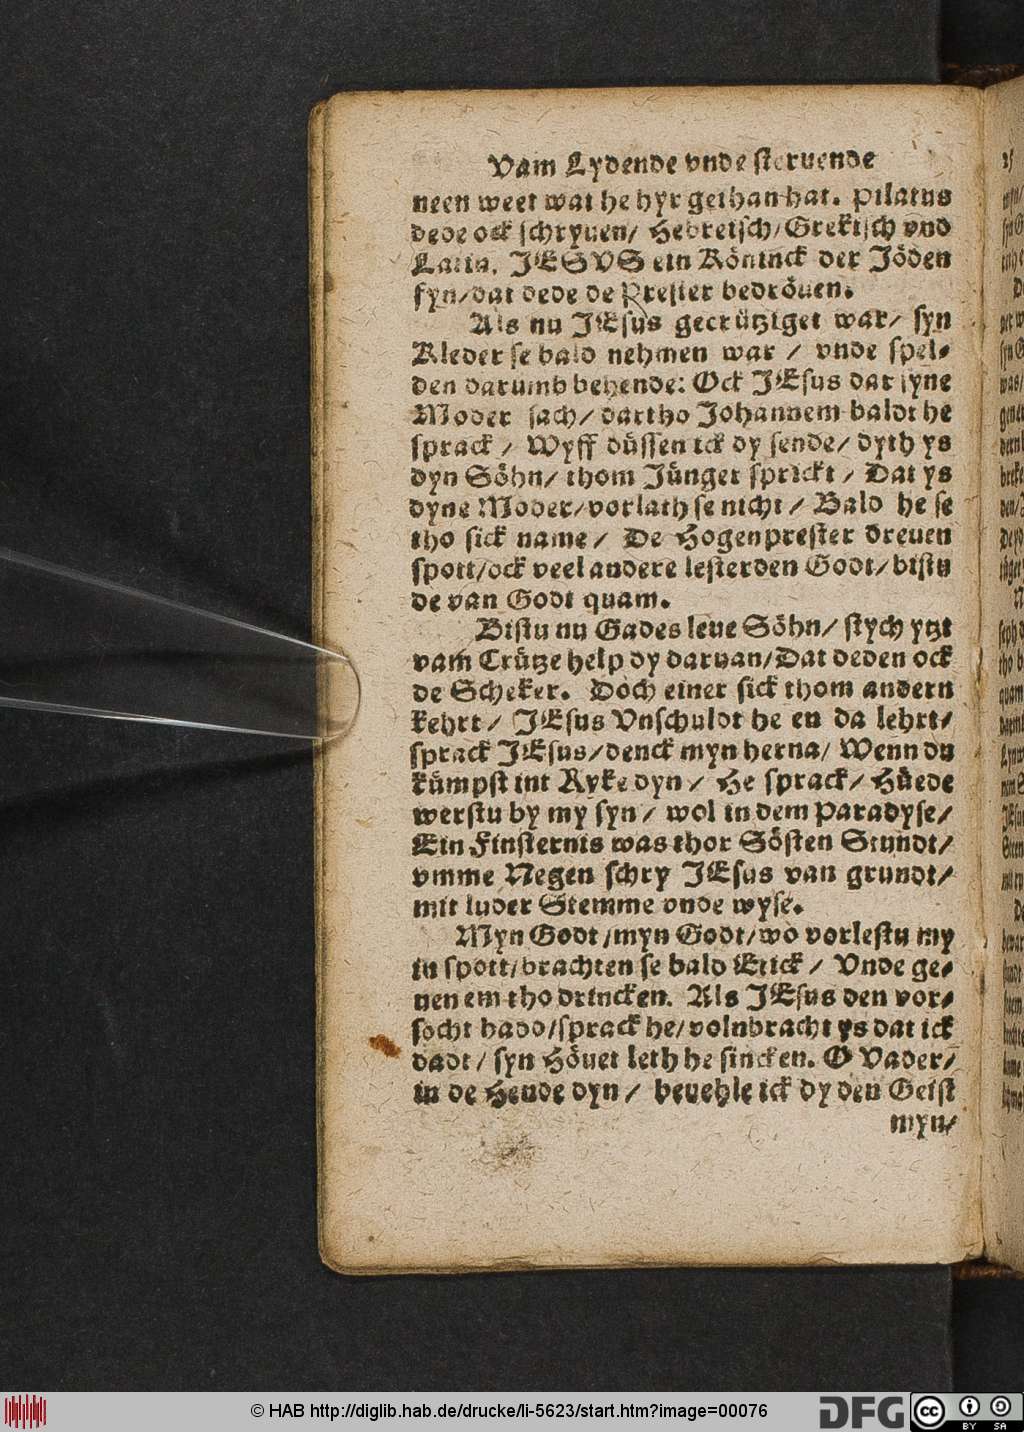 Vam Lydende vnde steruende
neen weet wat he hyr gethan hat. Pilatus
dede ock schryuen/ Hebretsch/ Grektsch vnd
Latin. JESVS ein Köninck der Jöden
syn/dat dede de Prester bedröuen.
Als nu JEsus gecrütziget war/ syn
Kleder se bald nehmen war / vnde spel-
den darumb behende: Ock JEsus dar syne
Moder sach/ dartho Johannem baldt he
sprack / Wyff düssen ick dy sende/ dyth ys
dyn Söhn/ thom Jünger sprickt / Dat ys
dyne Moder/vorlath se nicht / Bald he se
tho sick name / De Hogenprester dreuen
spott/ock veel andere lesterden Godt/bistu
de van Godt quam.
Bistu nu Gades leue Söhn/ stych ytzt
vam Crütze help dy daruan/Dat deden ock
de Scheker. Doch einer sick thom andern
kehrt / JEsus Vnschuldt he en da lehrt/
sprack JEsus/denck myn herna/ Wenn du
kümpst int Ryke dyn / He sprack/ Hüede
werstu by my syn / wol in dem Paradyse/
Ein Finsternis was thor Sösten Stundt/
vmme Negen schry JEsus van grundt/
mit luder Stemme vnde wyse.
Myn Godt/myn Godt/wo vorlestu my
in spott/brachten se bald Etick / Vnde ge-
uen em tho drincken. Als JEsus den vor-
socht hadd/sprack he/volnbracht ys dat ick
dadt / syn Höuet leth he sincken. O Vader/
in de Hende dyn / beuehle ick dy den Geist
myn/
© HAB http://diglib.hab.de/drucke/li-5623/start.htm?image=00076
DFG
cc BY SA